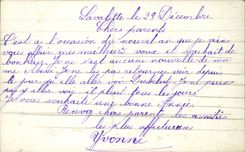 Lavalette le 29 Décembre
Chers parents
C'est a l'occasion du nouvel an que je viens
vous offrir mes meilleurs voeux et souhait de
bonheur. Je ne sai aucune nouvelle de ma
Je ne les pas retourner voir depuis
le jour qu'elle aller voir
y aller voir il pleut tous les jours
Je vous souhaite une bonne Année
Recevez chers parents les amitiés
les plus affectueuses
Yvonne